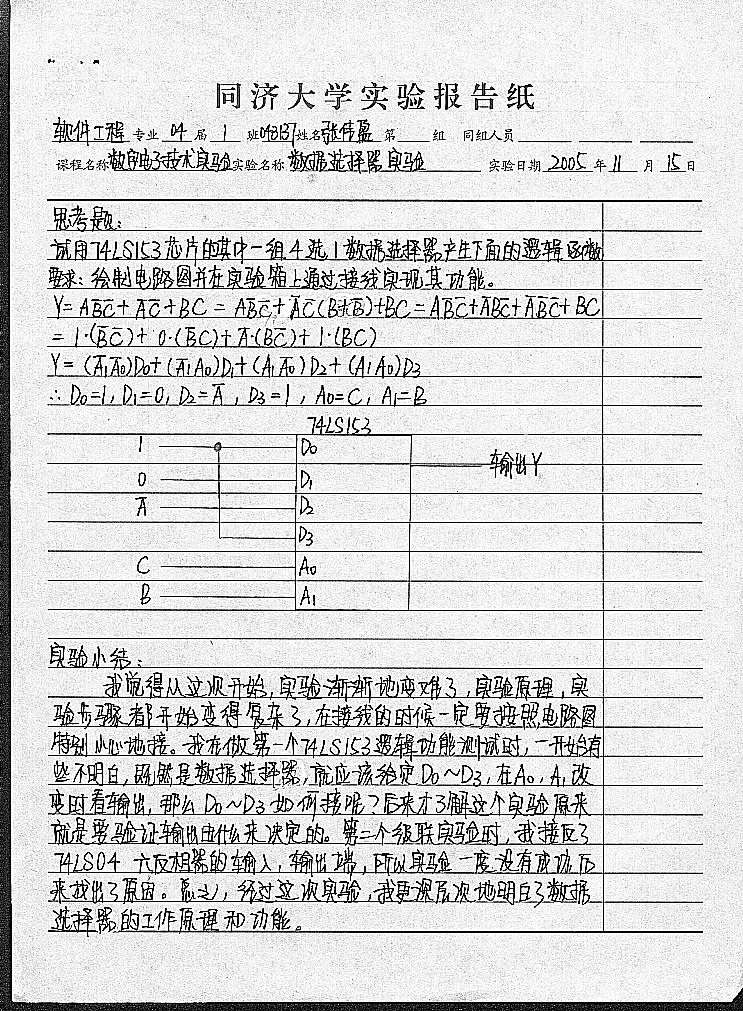 同济大学实验报告纸
软件工程 专业 04 届 1 班 043137 姓名 张伟盈 第 组 同组人员
课程名称 数字电子技术实验 实验名称 数据选择器实验 实验日期 2005 年 11 月 15 日
思考题:
试用74LS153芯片的其中一组4选1数据选择器产生下面的逻辑函数
要求:绘制电路图并在实验箱上通过接线实现其功能。
Y=AB̅C̅+A̅C̅+BC=AB̅C̅+A̅C̅(B+B̅)+BC=AB̅C̅+A̅BC̅+A̅B̅C̅+BC
=1·(B̅C̅)+0·(B̅C)+A̅·(BC̅)+1·(BC)
Y=(A̅₁A̅₀)D₀+(A̅₁A₀)D₁+(A₁A̅₀)D₂+(A₁A₀)D₃
∴ D₀=1, D₁=0, D₂=A̅, D₃=1, A₀=C, A₁=B
74LS153
1 D₀
输出Y
0 D₁
A̅ D₂
D₃
C A₀
B A₁
实验小结:
我觉得从这次开始,实验渐渐地变难了,实验原理,实
验步骤都开始变得复杂了,在接线的时候一定要按照电路图
特别小心地接。我在做第一个74LS153逻辑功能测试时,一开始有
些不明白,既然是数据选择器,就应该给定D₀~D₃,在A₀,A₁改
变时看输出,那么D₀~D₃如何接呢?后来才了解这个实验原来
就是要验证输出由什么来决定的。第二个级联实验时,我接反了
74LS04六反相器的输入,输出端,所以实验一度没有成功后
来找出了原因。总之,经过这次实验,我更深层次地明白了数据
选择器的工作原理和功能。